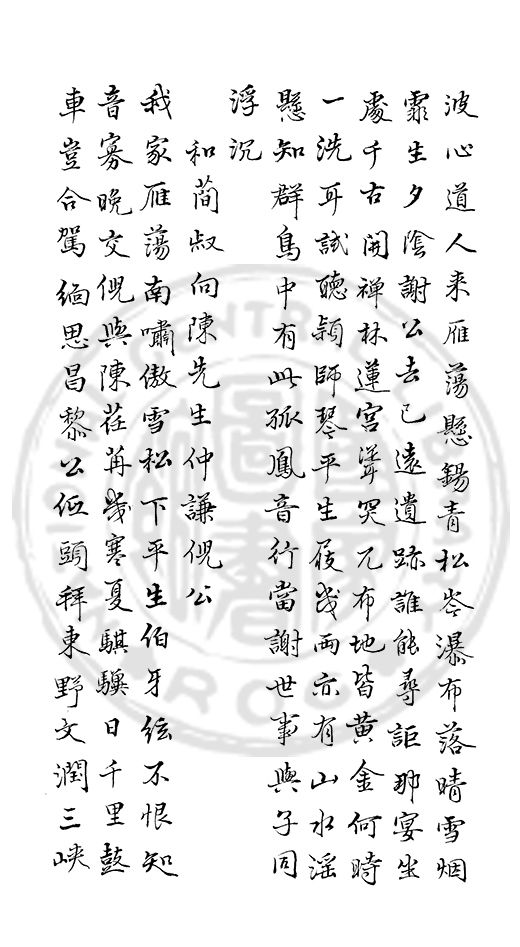 波心道人来雁蕩懸錫青松岑瀑布落晴雪烟
霏生夕陰謝公去已遠遺跡誰能尋詎那宴坐
處千古開禅林蓮宮聳突兀布地皆黄金何時
一洗耳試聽穎師琴平生屐幾兩亦有山水滛
懸知群鳥中有此孤鳳音行當謝世事與子同
浮沉
和蕳叔向陳先生仲謙倪公
我家雁蕩南嘯傲雪松下平生伯牙絃不恨知
音寡晚交倪與陳荏苒幾寒夏騏驥日千里鼓
車豈合駕緬思昌黎公低頭拜東野文瀾三峽